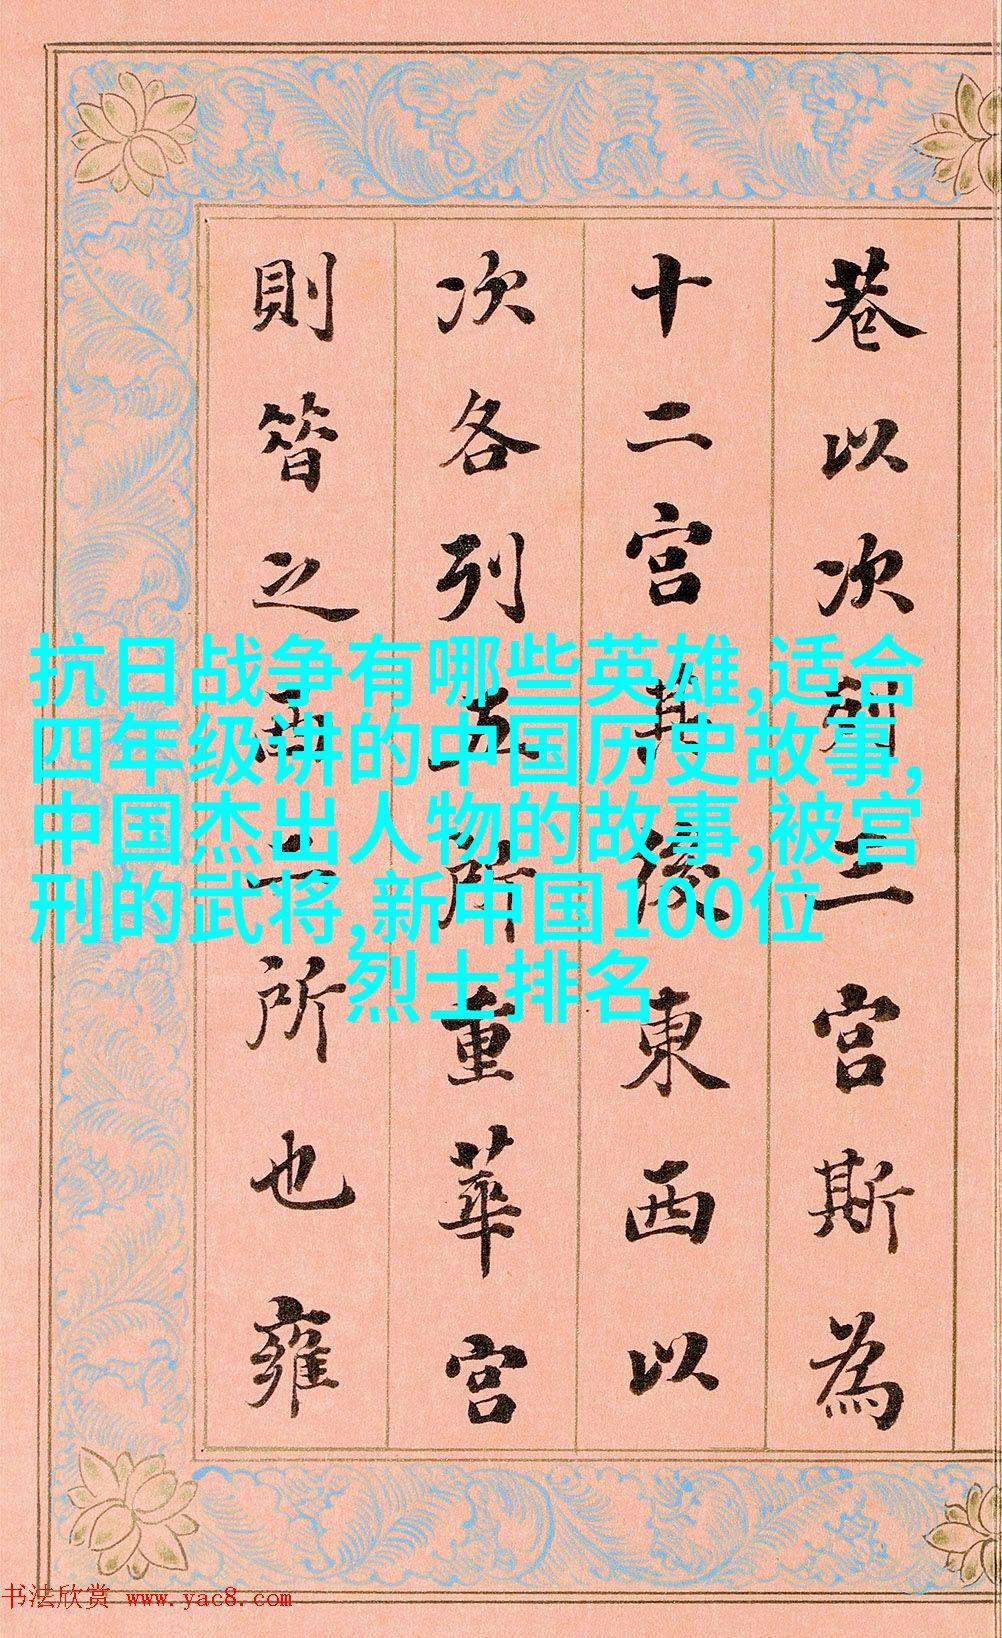 巷以次三宫斯為
十二宫其後東西以
次各列五所重華宫
則昔之西二所也雍
抗日战争有哪些英雄,适合
四年级讲的中国历史故事,
中国杰出人物的故事,被宫
刑的武将,新中国100位
烈士排名
书法欣赏 www.yac8.com